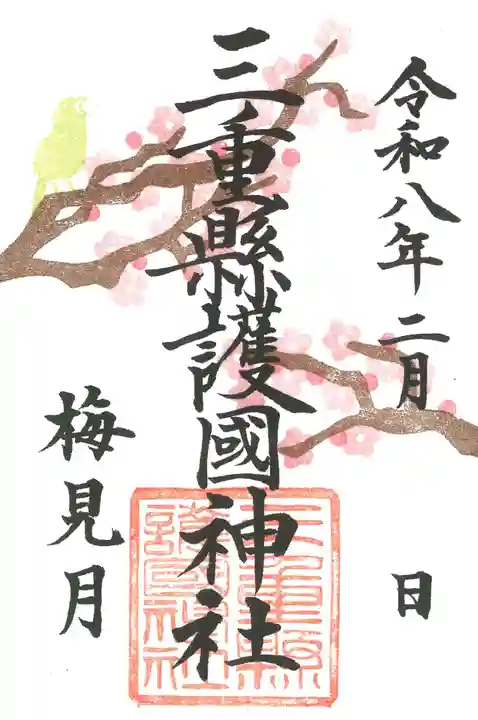 令和八年二月 日
三重縣護國神社
梅見月
三重縣護國神社